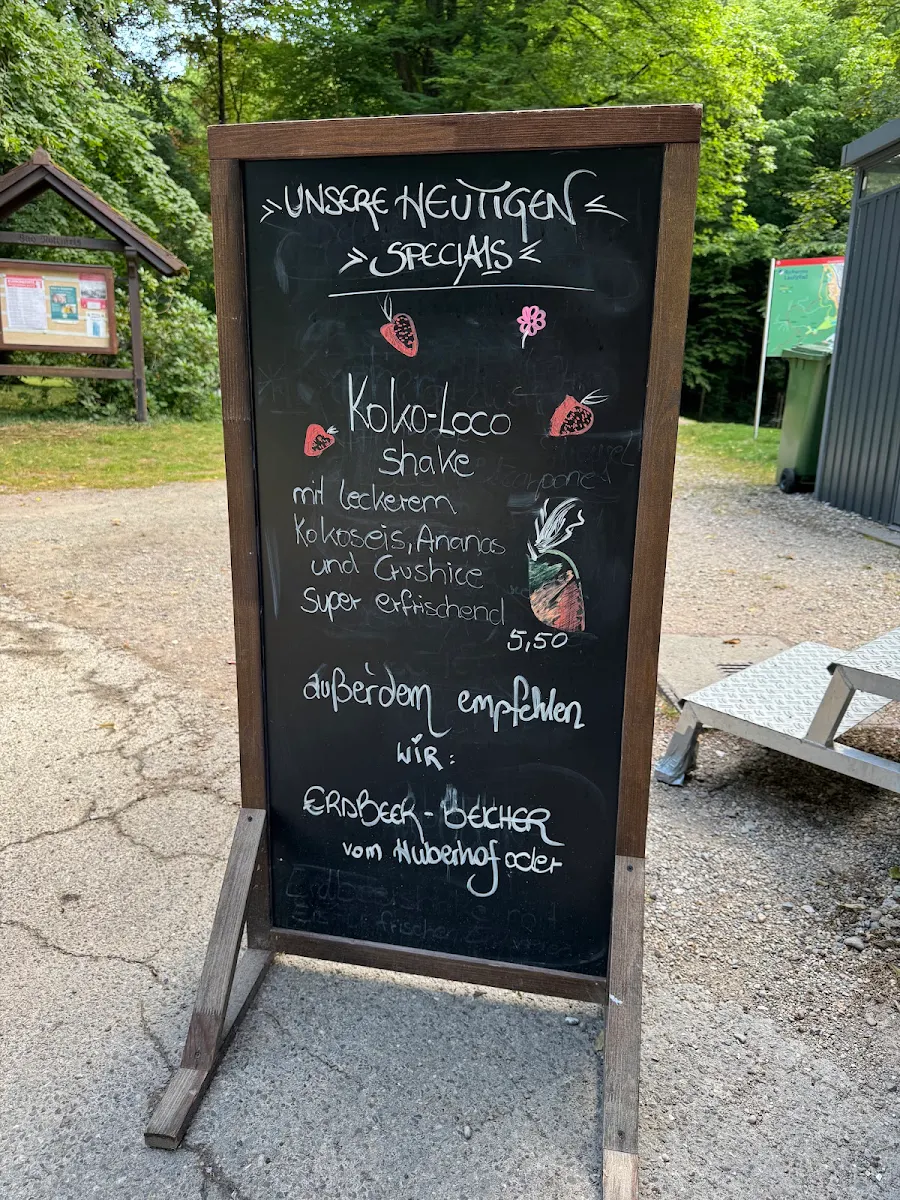 UNSERE HEUTIGEN
SPECIALS
Koko-Loco
Shake
mit leckerem
Kokoseis, Ananas
und Crushice
Super erfrischend
5,50
außerdem empfehlen
WIR:
ERDBEER-BECHER
vom Huberhof oder